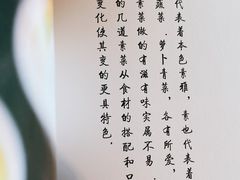 代表着本色素雅，素也代表着
蔬菜．萝卜青菜，各有所爱，
素菜做的有滋有味实属不易．
的几道素菜从食材的搭配和口
变化使其变的更具特色。